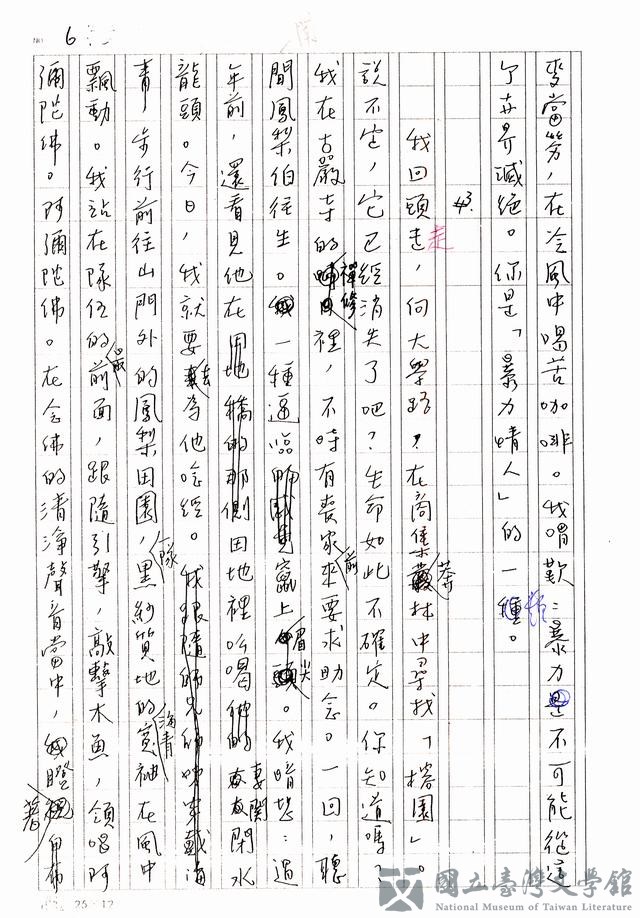 NO. 6
麥當勞，在冷風中喝苦咖啡。我喟歎：暴力是不可能從這
個世界滅絕。你是「暴力情人」的一種。
#3.
我回頭走，向大學路？在商業叢林中尋找「榕園」。
說不定，它已經消失了吧？生命如此不確定。你知道嗎？
我在古嚴寺的禪修裡，不時有喪家前來要求助念。一回，聽
聞鳳梨伯往生。一種逼臨竄上眉尖。我暗想：過
年前，還看見他在田地裡吆喝他的妻關閉水
龍頭。今日，我就要去為他唸經。
青，步行前往山門外的鳳梨田園，黑紗質地的海青在風中
飄動。我站在隊伍的最前面，跟隨引擎，敲擊木魚，領唱阿
彌陀佛。阿彌陀佛。在念佛的清淨聲音當中，瞪著白布
25 12
國立臺灣文學館
National Museum of Taiwan Literature